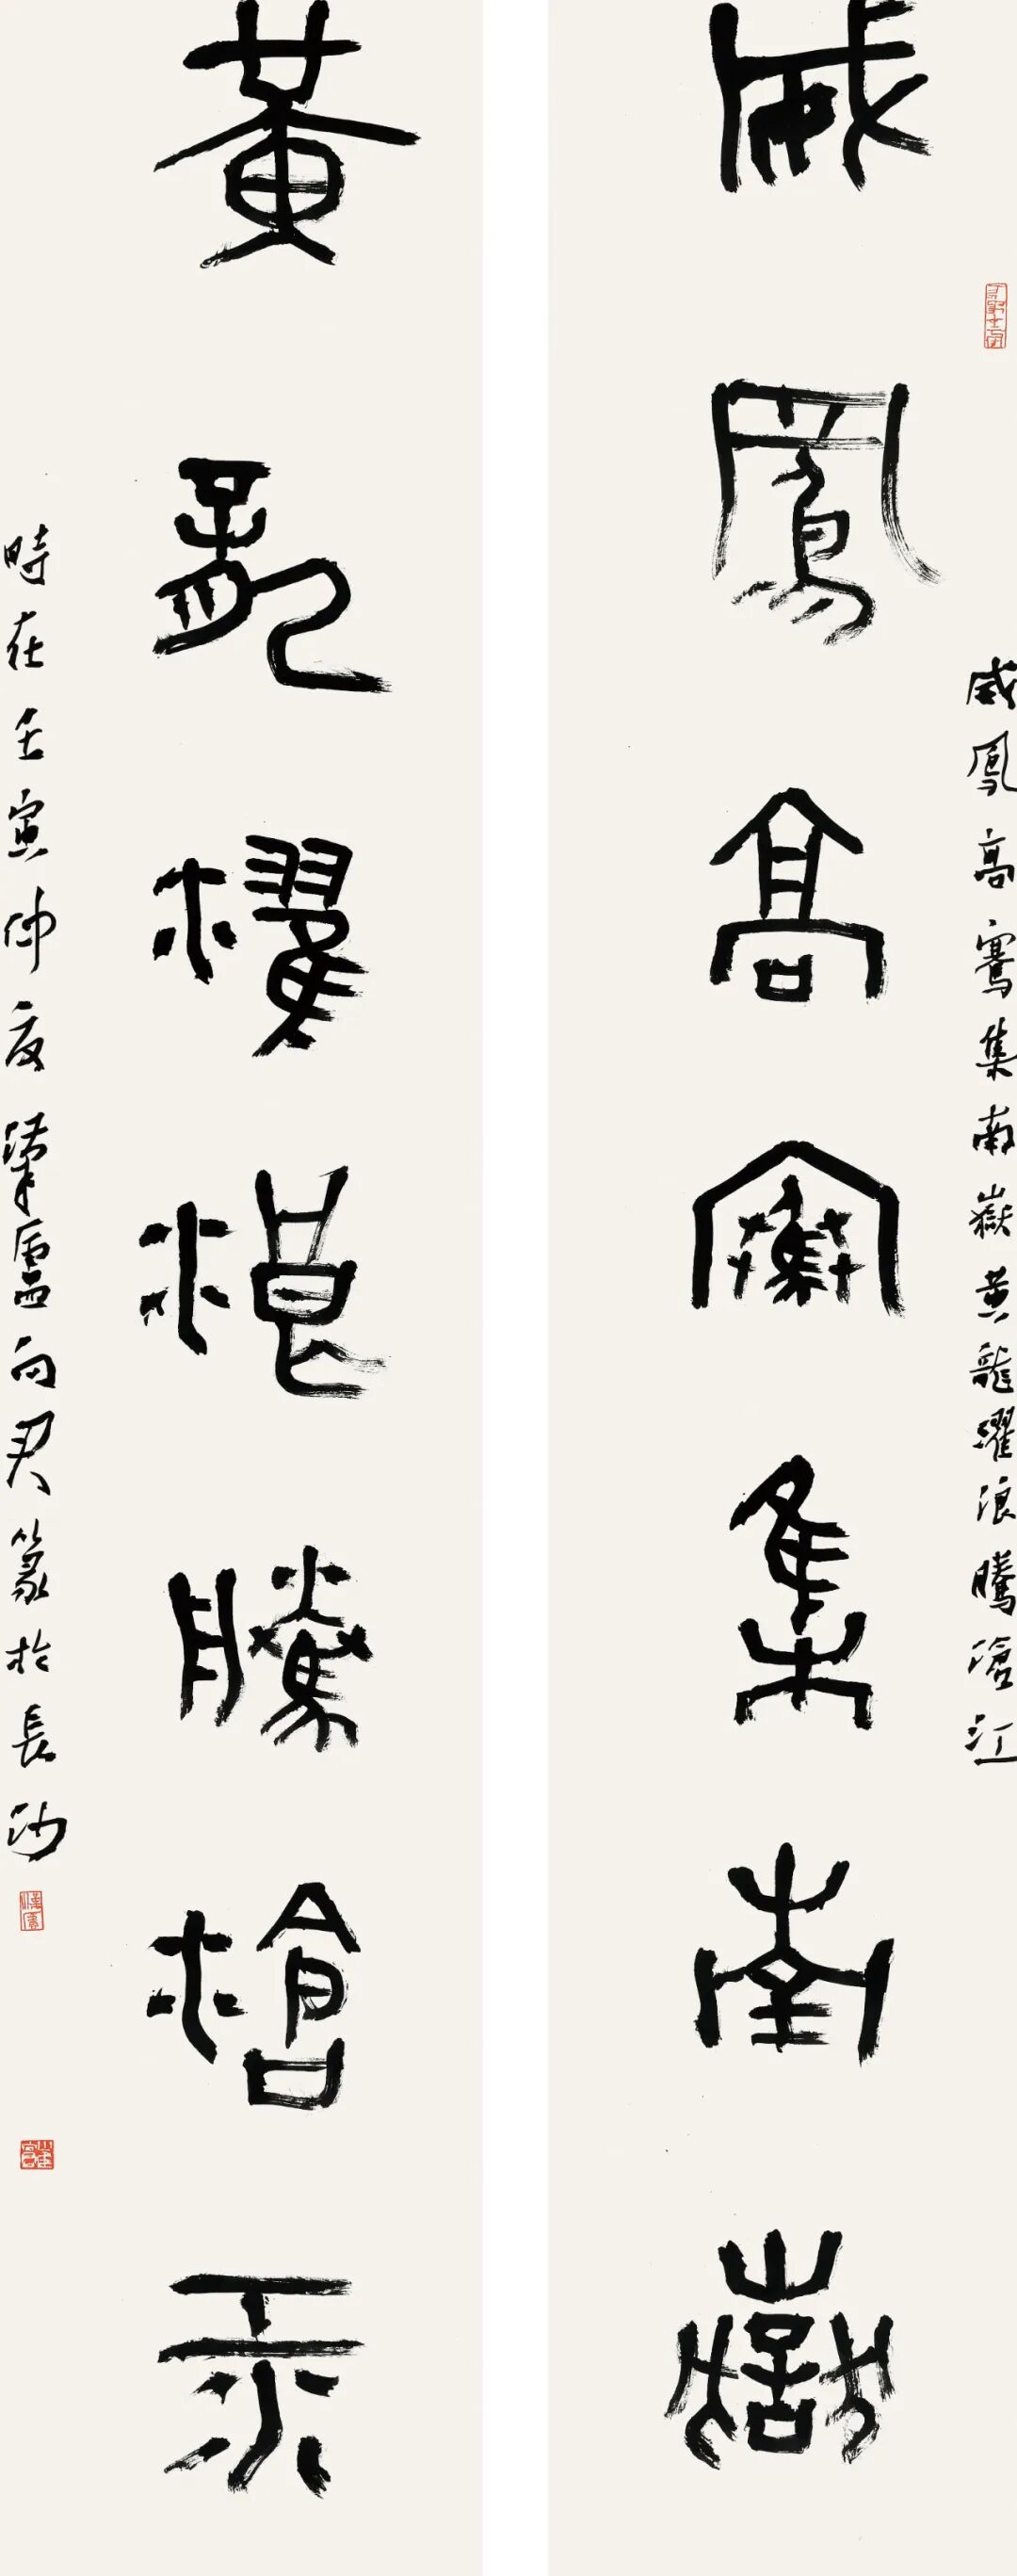 威鳳高騫集南嶽
威鳳高騫集南嶽黃龍躍浪騰滄江
黃龍躍浪騰滄江
時在壬寅仲夏 廬向君篆於長沙